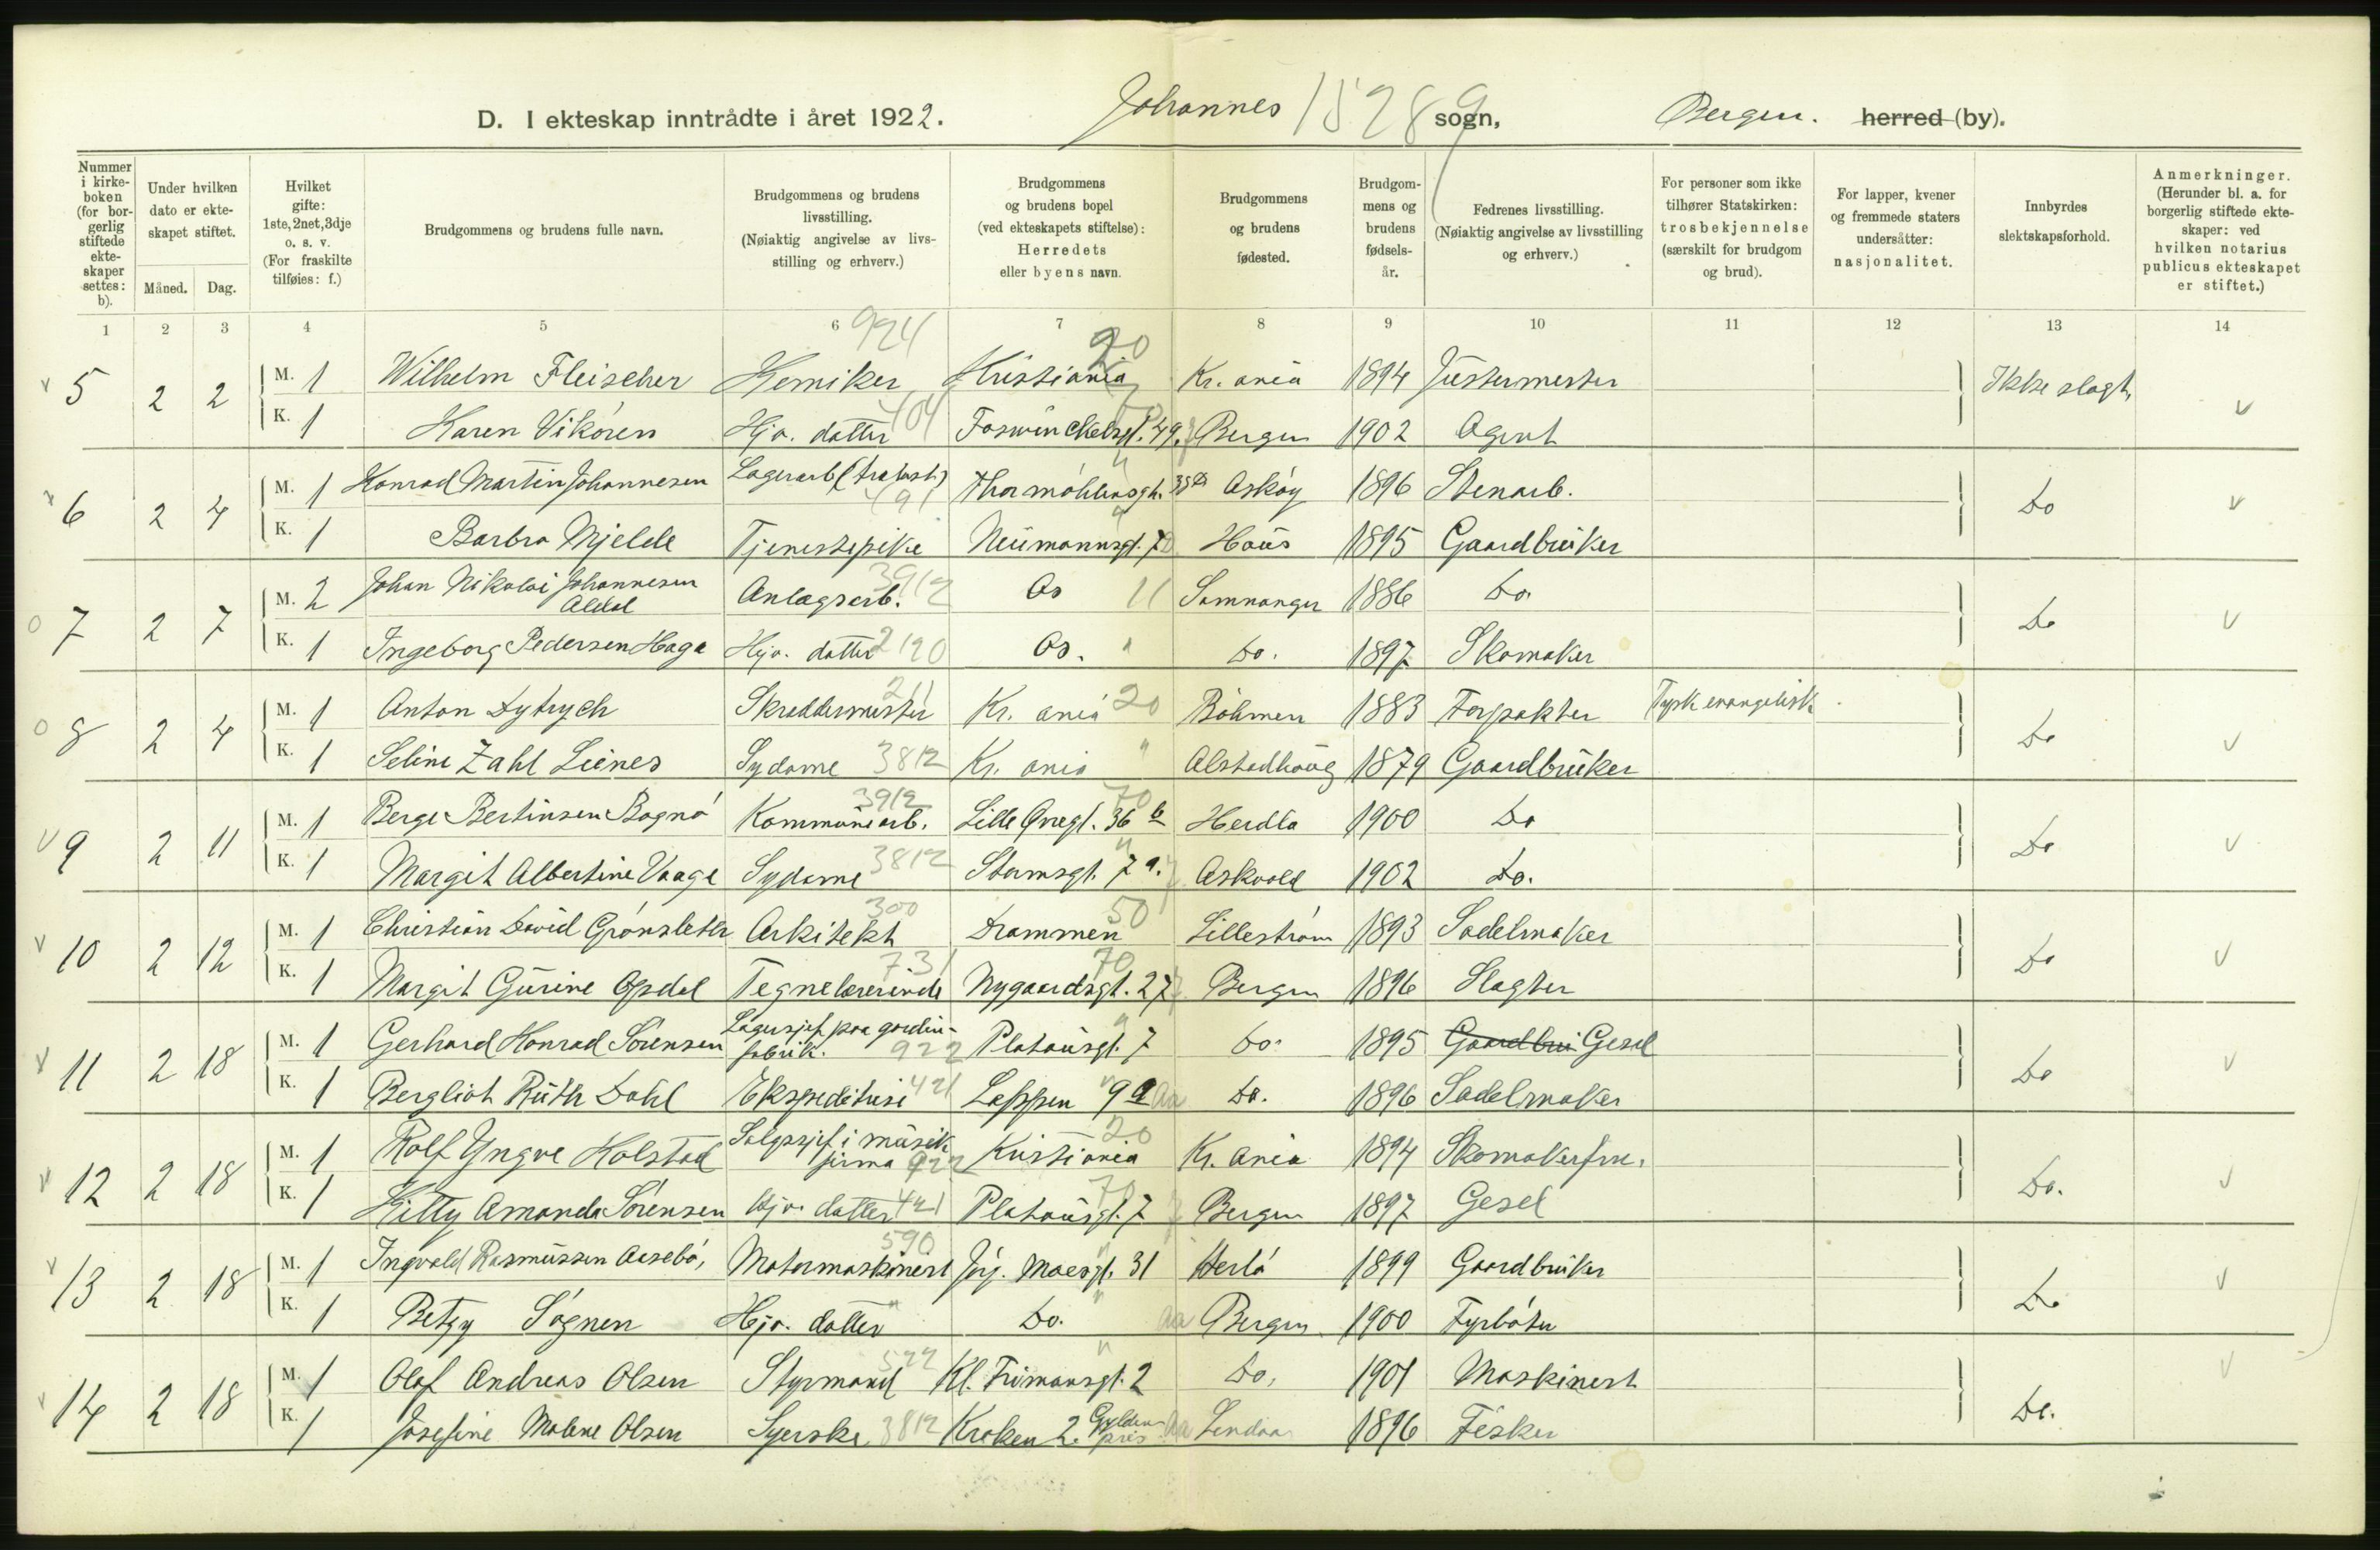 D. I ekteskap inntrådte i året 1922. Johannes 15289 sogn, Bergen. herred (by).
Nummer i kirkeboken (for borgerlig stiftede ekteskaper settes: b).
Under hvilken dato er ekteskapet stiftet.
Måned. Dag.
Hvilket gifte: 1ste, 2net, 3dje o. s. v. (For fraskilte tilføies: f.)
Brudgommens og brudens fulle navn.
Brudgommens og brudens livsstilling. (Nøiaktig angivelse av livsstilling og erhverv.)
Brudgommens og brudens bopel (ved ekteskapets stiftelse): Herredets eller byens navn.
Brudgommens og brudens fødested.
Brudgommens og brudens fødselsår.
Fedrenes livsstilling. (Nøiaktig angivelse av livsstilling og erhverv.)
For personer som ikke tilhører Statskirken: trosbekjennelse (særskilt for brudgom og brud).
For lapper, kvener og fremmede staters undersåtter: nasjonalitet.
Innbyrdes slektskapsforhold.
Anmerkninger. (Herunder bl. a. for borgerlig stiftede ekteskaper: ved hvilken notarius publicus ekteskapet er stiftet.)
1 2 3 4 5 6 7 8 9 10 11 12 13 14
5 2 2 M. 1 Wilhelm Fleischer Kemiker 924 Kristiania 20 Kr. ania 1894 Justermester Ikke slagt. v
K. 1 Karen Vikören Hjv. datter 404 Foswinckelsgt. 49. Bergen 1902 Agent
6 2 4 M. 1 Konrad Martin Johannesen Lagerarb. 491 Thormöhlensgt. Asköy 1896 Stenarb. Do v
K. 1 Barbro Mjelde Tjenestepike Neumannsgt. Haus 1895 Gaardbruker
7 2 7 M. 2 Johan Nikolai Johannesen Aldal Anlagsarb. 3912 Os 11 Samnanger 1886 Do. Do v
K. 1 Ingeborg Pedersen Haga Hjv. datter 2120 Os. " Do. 1897 Skomaker
8 2 4 M. 1 Anton Dytrych Skreddermester 211 Kr. ania 20 Böhmen 1883 Forpakter Tysk evangelisk Do v
K. 1 Seline Zahl Lienes Sydame 3812 Kr. ania " Alstadhaug 1879 Gaardbruker
9 2 11 M. 1 Berge Bertinsen Bognö Kommunearb. 3912 Lille Øvregt. 36 b 70 Herdla 1900 Do Do v
K. 1 Margit Albertine Vaage Sydame 3812 Stormsgt. 7 a. Askvold 1902 Do.
10 2 12 M. 1 Christian David Grönsleth Arkitekt 300 Drammen 50 Lilleström 1893 Sadelmaker Do v
K. 1 Margit Gurine Opdal Tegnelærerinde 731 Nygaardsgt. 27 70 Bergen 1896 Slagter
11 2 18 M. 1 Gerhard Konrad Sörensen Lagersjef paa gardinfabrik. 922 Platousgt. 7 Do. 1895 Gaardbru Gesel Do v
K. 1 Bergliot Ruth Dahl Ekspeditrise 421 Lappen 9 a Do. 1896 Sadelmaker
12 2 18 M. 1 Rolf Yngve Holstad Salgssjef i musikfirma 922 Kristiania 20 Kr. ania 1894 Skomakerfor. Do. v
K. 1 Kitty Amanda Sörensen Hjv. datter 421 Platousgt. 7 70 Bergen 1897 Gesel
13 2 18 M. 1 Ingvald Rasmussen Aasebö, Motormaskinist 590 Jörg. Moesgt. 31 Herlö 1899 Gaardbruker Do v
K. 1 Betzy Sognen Hjv. datter Do. Bergen 1900 Fyrböter
14 2 18 M. 1 Olaf Andreas Olsen Styrmand 522 Kl. Frimansgt. 2 Do. 1901 Maskinist Do. v
K. 1 Josefine Malene Olsen Syerske 3812 Kroken 2. Gyldenpris Lindaas 1896 Fisker